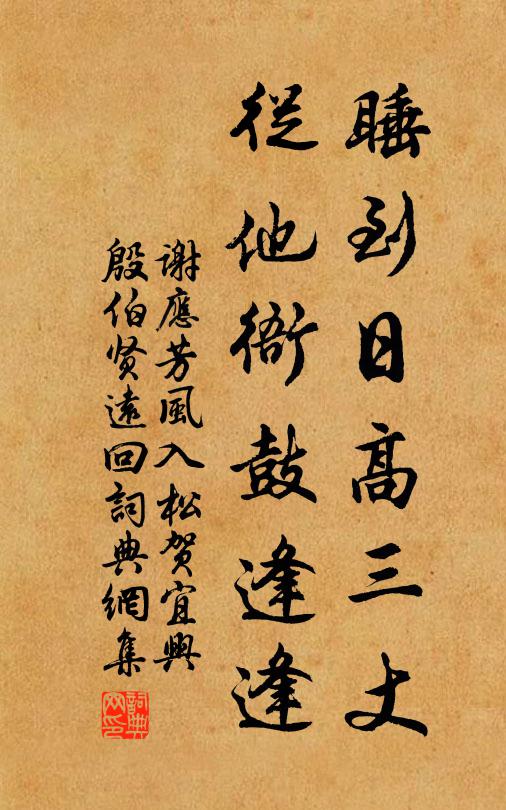 睡到日高三丈
從他衙鼓逢逢
謝應芳風入松賀宜興
殷伯贤遠回詞典網集
詞典網印